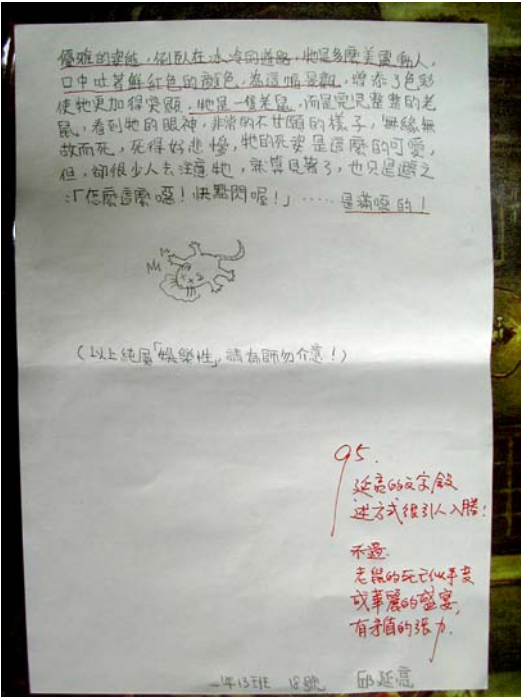 優雅的姿態，側臥在冰冷的道路，牠是多麼美麗動人，
口中吐著鮮紅色的顏色，為這幅景觀，增添了色彩
使牠更加得突顯，牠是一隻老鼠，而是完完整整的老
鼠，看到牠的眼神，非常的不甘願的樣子，無緣無
故而死，死得好悲慘，牠的死姿是這麼的可愛，
但，卻很少人去注意牠，就算見著了，也只是避之
：「怎麼這麼噁！快點閃喔！」……是滿噁的！
（以上純屬「娛樂性」，請老師勿介意！）
95.
延亮的文字敘
述方式很引人入勝：
不過，
老鼠的死亡似乎變
成華麗的盛宴，
有矛盾的張力.
一年13班 18號 邱延亮